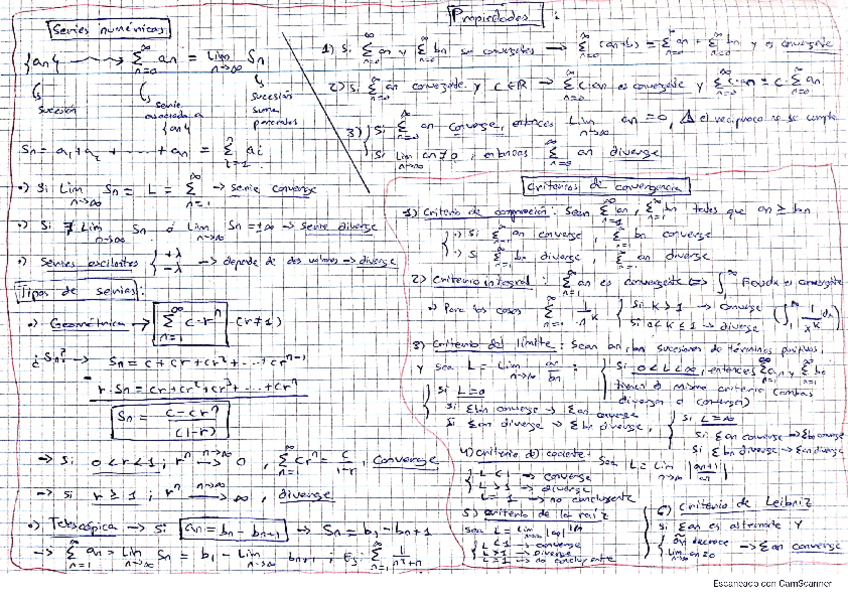 Series numéricas
{an} → Σ_{n=0}^{∞} an = Lim_{n→∞} Sn
sucesión
serie asociada a {an}
sucesión sumas parciales
Sn = a1 + a2 + ..... + an = Σ_{i=1}^{n} ai
•) Si Lim_{n→∞} Sn = L = Σ_{n=1}^{∞} → serie converge
•) Si ∄ Lim_{n→∞} Sn ó Lim_{n→∞} Sn = ±∞ → serie diverge
•) series oscilantes { +λ -λ → depende de dos valores → diverge
Tipos de series:
•) Geométrica → Σ_{n=1}^{∞} c·r^n (r≠1)
¿Sn? → Sn = c + cr + cr² + ... + cr^{n-1}
- r·Sn = cr + cr² + cr³ + ... + cr^n
Sn = (c - cr^n)/(1-r)
→ Si 0<r<1; r^n →^{n→∞} 0, Σ_{n=1}^{∞} cr^n = c/(1-r), Converge
→ si r≥1; r^n →^{n→∞} ∞, diverge
•) Telescópica → si an = bn - bn+1 → Sn = b1 - bn+1
→ Σ_{n=1}^{∞} an = Lim_{n→∞} Sn = b1 - Lim_{n→∞} bn+1; Ej: Σ_{n=1}^{∞} 1/(n²+n)
Propiedades:
1) Si Σ_{n=0}^{∞} an y Σ_{n=0}^{∞} bn son convergentes → Σ_{n=0}^{∞} (an+bn) = Σ_{n=0}^{∞} an + Σ_{n=0}^{∞} bn y es convergente
2) Si Σ_{n=0}^{∞} an convergente y c∈ℝ → Σ_{n=0}^{∞} c·an es convergente y Σ_{n=0}^{∞} c·an = c·Σ_{n=0}^{∞} an
3) Si Σ_{n=0}^{∞} an converge, entonces Lim_{n→∞} an = 0, ⚠ el recíproco no se cumple
Si Lim_{n→∞} an ≠ 0, entonces Σ_{n=0}^{∞} an diverge
Criterios de convergencia
1) Criterio de comparación: Sean Σ_{n=1}^{∞} an, Σ_{n=1}^{∞} bn tales que an ≥ bn
•) Si Σ_{n=1}^{∞} an converge, Σ_{n=1}^{∞} bn converge
•) Si Σ_{n=1}^{∞} bn diverge, Σ_{n=1}^{∞} an diverge
2) Criterio integral: Σ_{n=1}^{∞} an es convergente ⟺ ∫_1^∞ F(x)dx es convergente
•) Para los casos Σ_{n=1}^{∞} 1/n^k { Si k>1 → converge
Si 0<k≤1 → diverge (∫_1^∞ 1/x^k dx)
3) Criterio del límite: Sean an, bn sucesiones de términos positivos,
y sea L = Lim_{n→∞} an/bn : { Si 0<L<∞, entonces Σ an y Σ bn
tienen el mismo criterio (ambas
divergen o convergen)
Si L=0
Si Σbn converge → Σan converge
Si Σan diverge → Σbn diverge,
Si L=∞
Si Σan converge → Σbn converge
Si Σbn diverge → Σan diverge
4) Criterio del cociente: Sea L = Lim_{n→∞} |an+1/an|
L<1 → converge
L>1 → diverge
L=1 → no concluyente
5) Criterio de la raíz
sea L = Lim_{n→∞} |an|^{1/n}
L<1 → converge
L>1 → diverge
L=1 → no concluyente
6) Criterio de Leibniz
Si Σan es alternate y
an decrece
Lim_{n→∞} an=0 → Σan converge
Escaneado con CamScanner